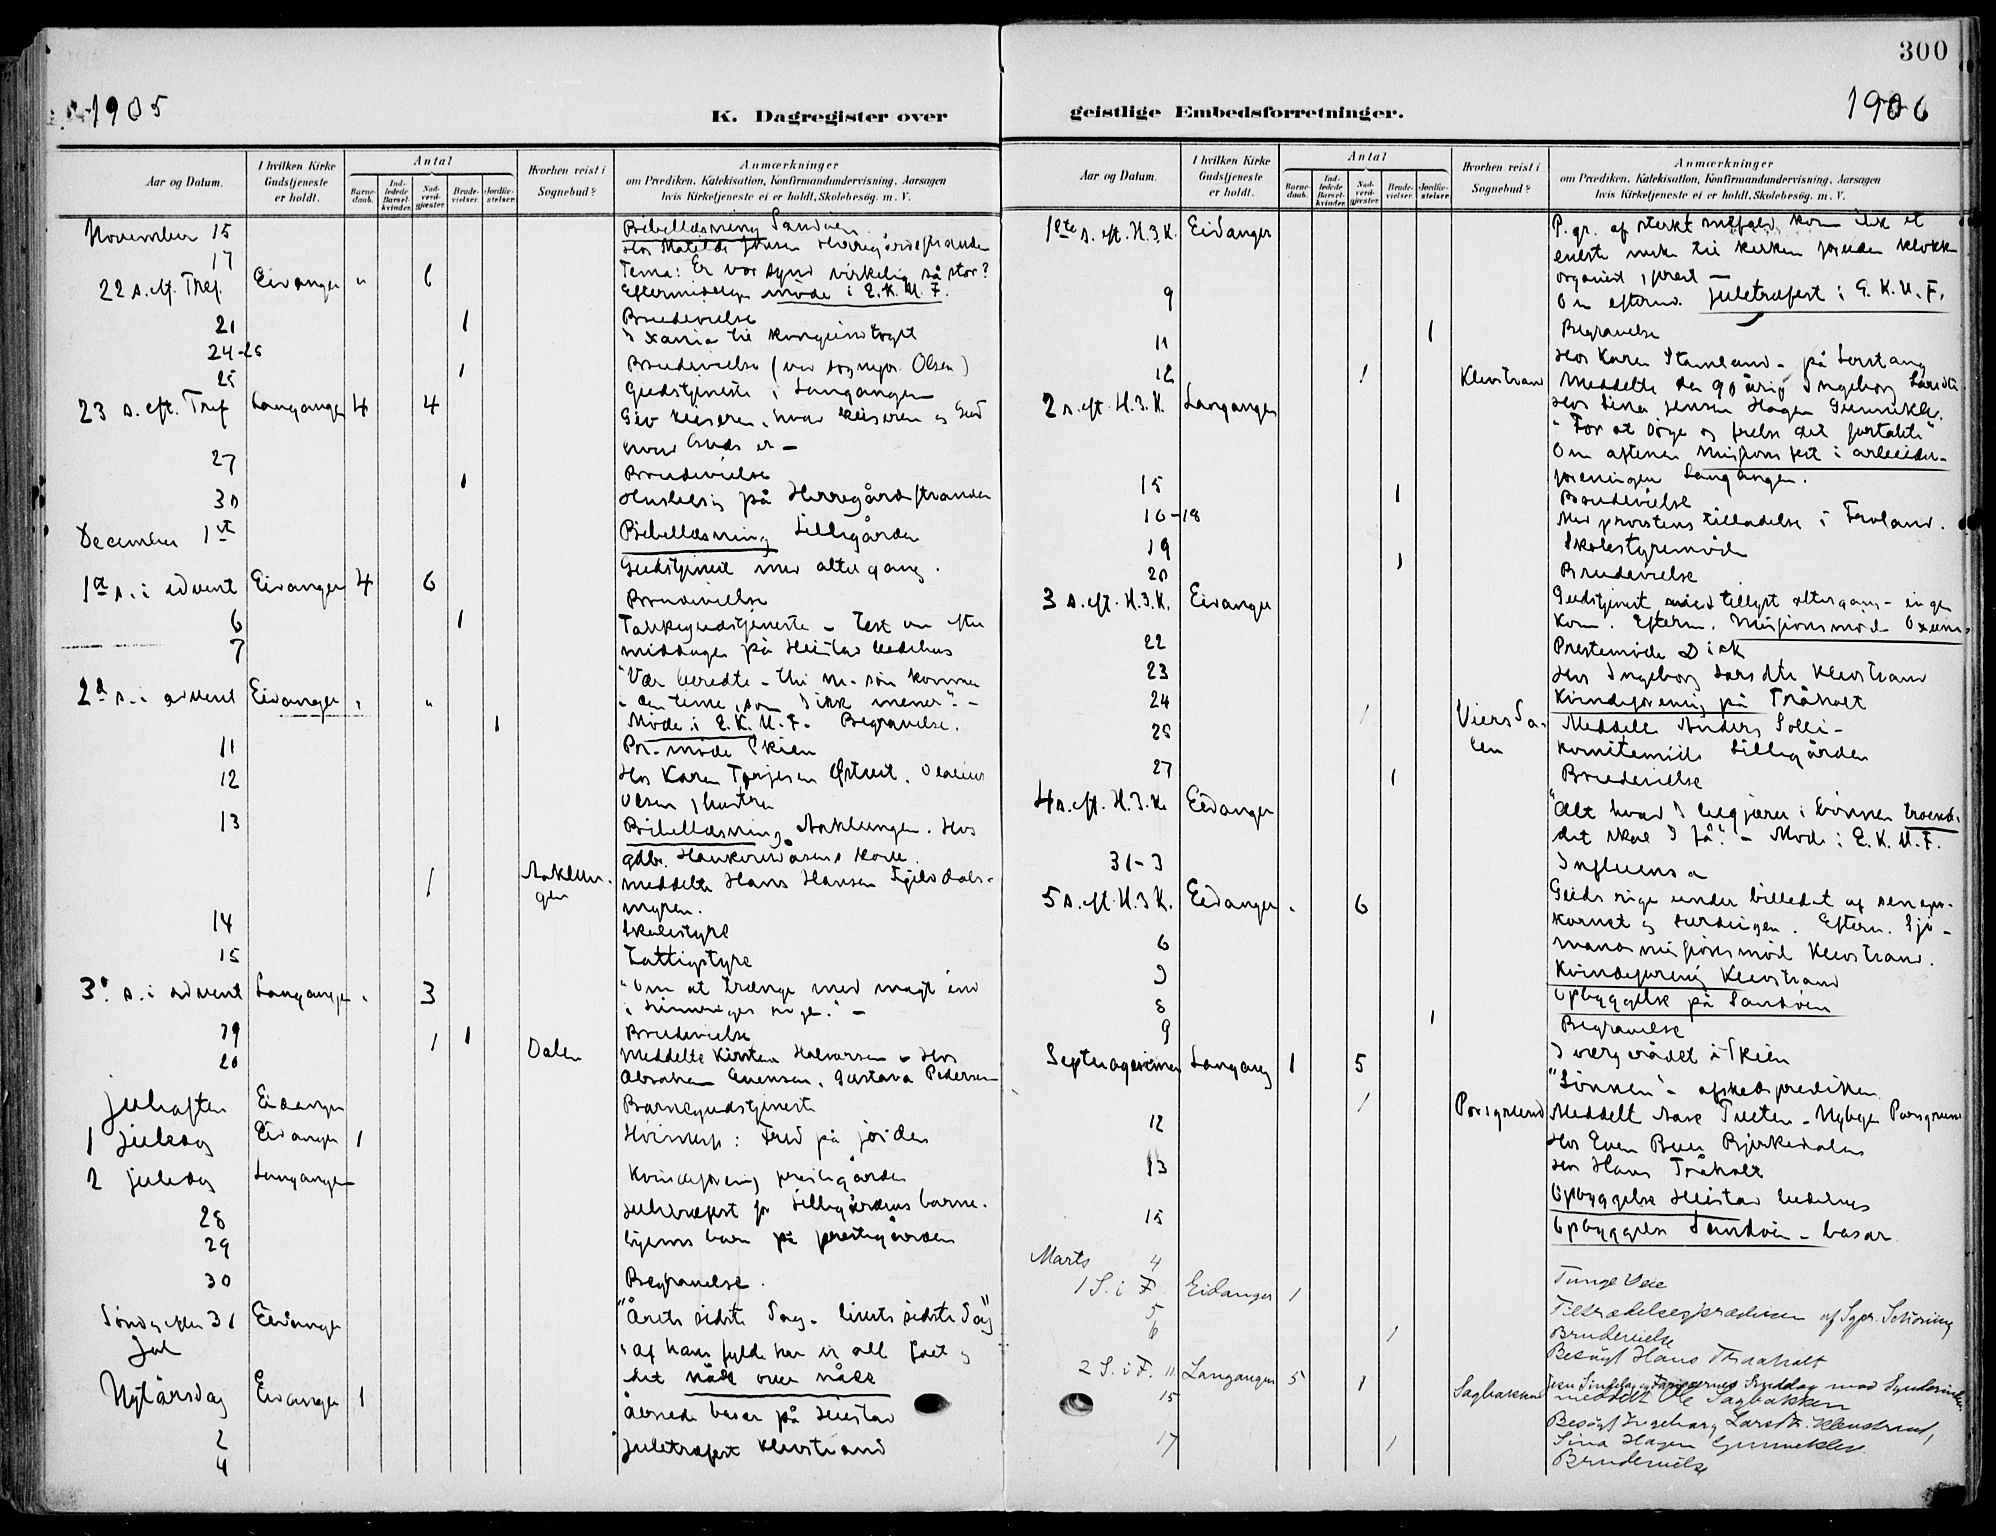 300
1905
K. Dagregister over
geistlige Embedsforretninger.
1906
Aar og Datum.
I hvilken Kirke Gudstjeneste er holdt.
Antal
Barnedaab.
Indledede Barselkvinder.
Nadverdgjæster.
Brudevielser.
Jordfæstelser.
Hvorhen reist i Sognebud?
Anmærkninger
om Prædiken, Katekisation, Konfirmandundervisning, Aarsagen
hvis Kirketjeneste ei er holdt, Skolebesøg. m. V.
November 15 Bibellæsning Sandøen
17
22 s. eft. Tref. Eidanger " 6 Tema: Er vor synd virkelig så stor?
Eftermiddagen møde i E.K.U.F.
21 1 Brudevielse
24-26 I Xania til kongeindtoget
25 1 Brudevielse (ved sognepr. Olsen)
23 s. eft. Tref Langangen 4 4 Gudstjeneste i Langangen
Giv keiseren, hvad keiserens og Gud
hvad Guds er -
27 1 Brudevielse
30 Husbesøg på Herregårdsstranden
December 1ste Bibellæsning Lillegården
1ste s. i advent Eidanger 4 6 Gudstjeneste med altergang.
6 1 Brudevielse
7 Takkegudstjeneste
middagen på Heistad bedehus
2d s. i advent Eidanger " " "Vær beredte - thi m. søn kommer
i den time, som I ikke mener" -
1 Møde i E.K.U.F. Begravelse.
11 Pr. møde Skien
12 Hos Karen Torjesen Østvet.
Olsen, hustru
13 Bibellæsning Aaklungen. Hos
1 Aaklungen meddelte Hans Hansen
myren.
14 Skolestyre
15 Fattigstyre
3. s. i advent Langangen " 3 "Om at trænge med magt ind
i himmeriges rige." -
19 1 Brudevielse
20 1 Dalen Meddelte Kirsten Halvorsen - Hos
Abraham Evensen, Gustava Pedersen
Juleaften Eidanger Barnegudstjeneste
1 juledag Eidanger 1 Høimesse: Fred på jorden
2 juledag Langangen
Kvindeforening prestegården
28 Juletræfest for Lillegårdens barne-
29 hjems barn på prestegården
30 Begravelse.
Søndag efter Jul 31 Eidanger "Årets sidste Dag - livets sidste Dag"
"Af hans fylde har vi all fået og
det nåde over nåde
Nytårsdag Eidanger 1
2 Åbnede basar på Heistad
4 Juletræfest Klevstrand
Aar og Datum.
I hvilken Kirke Gudstjeneste er holdt.
Antal
Barnedaab.
Indledede Barselkvinder.
Nadverdgjæster.
Brudevielser.
Jordfæstelser.
Hvorhen reist i Sognebud?
Anmærkninger
om Prædiken, Katekisation, Konfirmandundervisning, Aarsagen
hvis Kirketjeneste ei er holdt, Skolebesøg. m. V.
1ste s. eft. H.3.K. Eidanger P. gr. af sterkt snefald kom ikke et
eneste menneske til kirken foruden klokker
organist, prest -
9 Om efterm. juletræfest i E.K.U.F.
11 1 Begravelse
Hos Karen Stamland - på Lerstang
12 1 Klevstrand Meddelte den 90 årige Ingeborg Larsdtr.
2 s. eft. H.3.K. Langangen Hos Sina Jensen Hagen Gunnekle.
"For at søge og frelse det fortabte"
Om aftenen missionsfest i arbeider-
foreningen Langangen.
15 1 Brudevielse
16-18 Med provstens tilladelse i Froland.
19 Skolestyremøde
20 1 Brudevielse
3 s. eft. H.3.K. Eidanger Gudstjeneste med tillyst altergang - ingen
kom. Efterm. Missionsmøde
22 Prestemøde
23 Hos Ingeborg Larsdtr Klevstrand
24 Kvindeforening på Tråholt
25 1 Viersdalen Meddelte Anders Solli -
komitemøde Lillegården
27 1 Brudevielse
4 s. eft. H.3.K. Eidanger "Alt hvad I begjærer i bønnen troende,
det skal I få." - Møde i E.K.U.F.
31-3 Influensa
5 s. eft. H.3.K. Eidanger " 6 Guds rige under billedet af senneps-
kornet og surdeigen. Efterm. Sjø-
6 mandsmissionsmøde Klevstrand.
7 Kvindeforening Klevstrand
8 Opbyggelse på Sandøen
9 1 Begravelse
I vergerådet i Skien
Septuagesima Langang 1 5 "Sønnen" - afskedsprædiken
12 1 Porsgrund Meddelt Aase Tveten - Nybye Porsgrund
Hos Even Buer Bjerkedalen
13 Hos Hans Tråholt
Opbyggelse Heistad bedehus
15 Opbyggelse Sandøen - basar.
Marts 4 Tunge Veie
1 S. i F. Eidanger 1 Tiltrædelsesprædiken af Sgpr. Schøning
5 Brudevielse
6 1 Besøgt Hans Traaholt
2 S. i F. 11 Langangen 5
15 1 Sagbakken meddelt Ole Sagbakken
Besøgt Ingeborg Larsdtr. Klevstrand,
17 1 Sina Hagen Gunnekleiv
Brudevielse